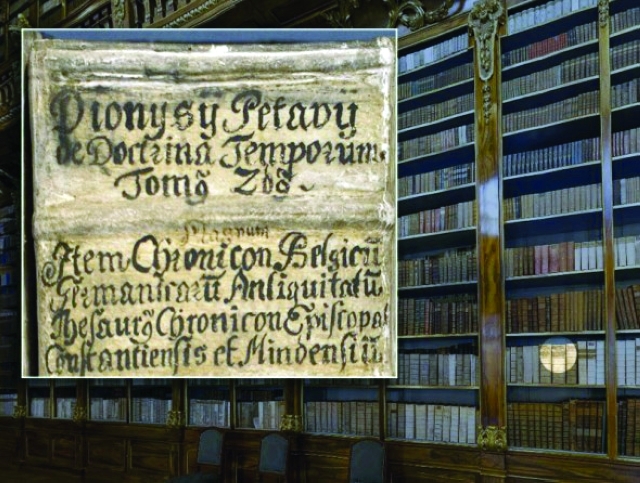 Dionysÿ Petavÿ
de Doctrina Temporum.
Tomꝯ 2dꝯ
Magnum
Item Chronicon Belgicū
Germanicarū Antiquitatū
Thesaurꝯ Chronicon Episcopa
Constantiensis et Mindensiū